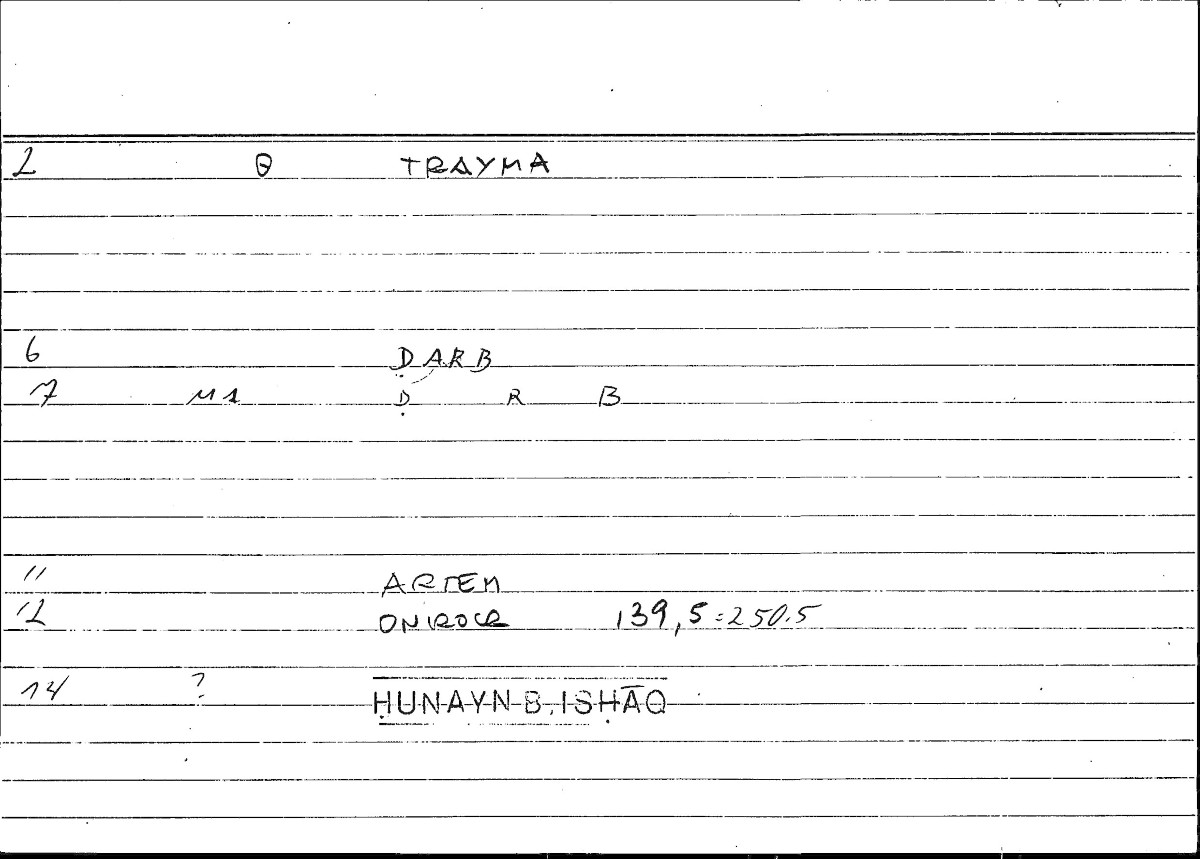 2 θ TRAYMA
6 ḌARB
7 M1 Ḍ R B
11 ARTEM
12 ONIROCR 139,5=250.5
14 ? ḤUNAYN B. ISḤĀQ